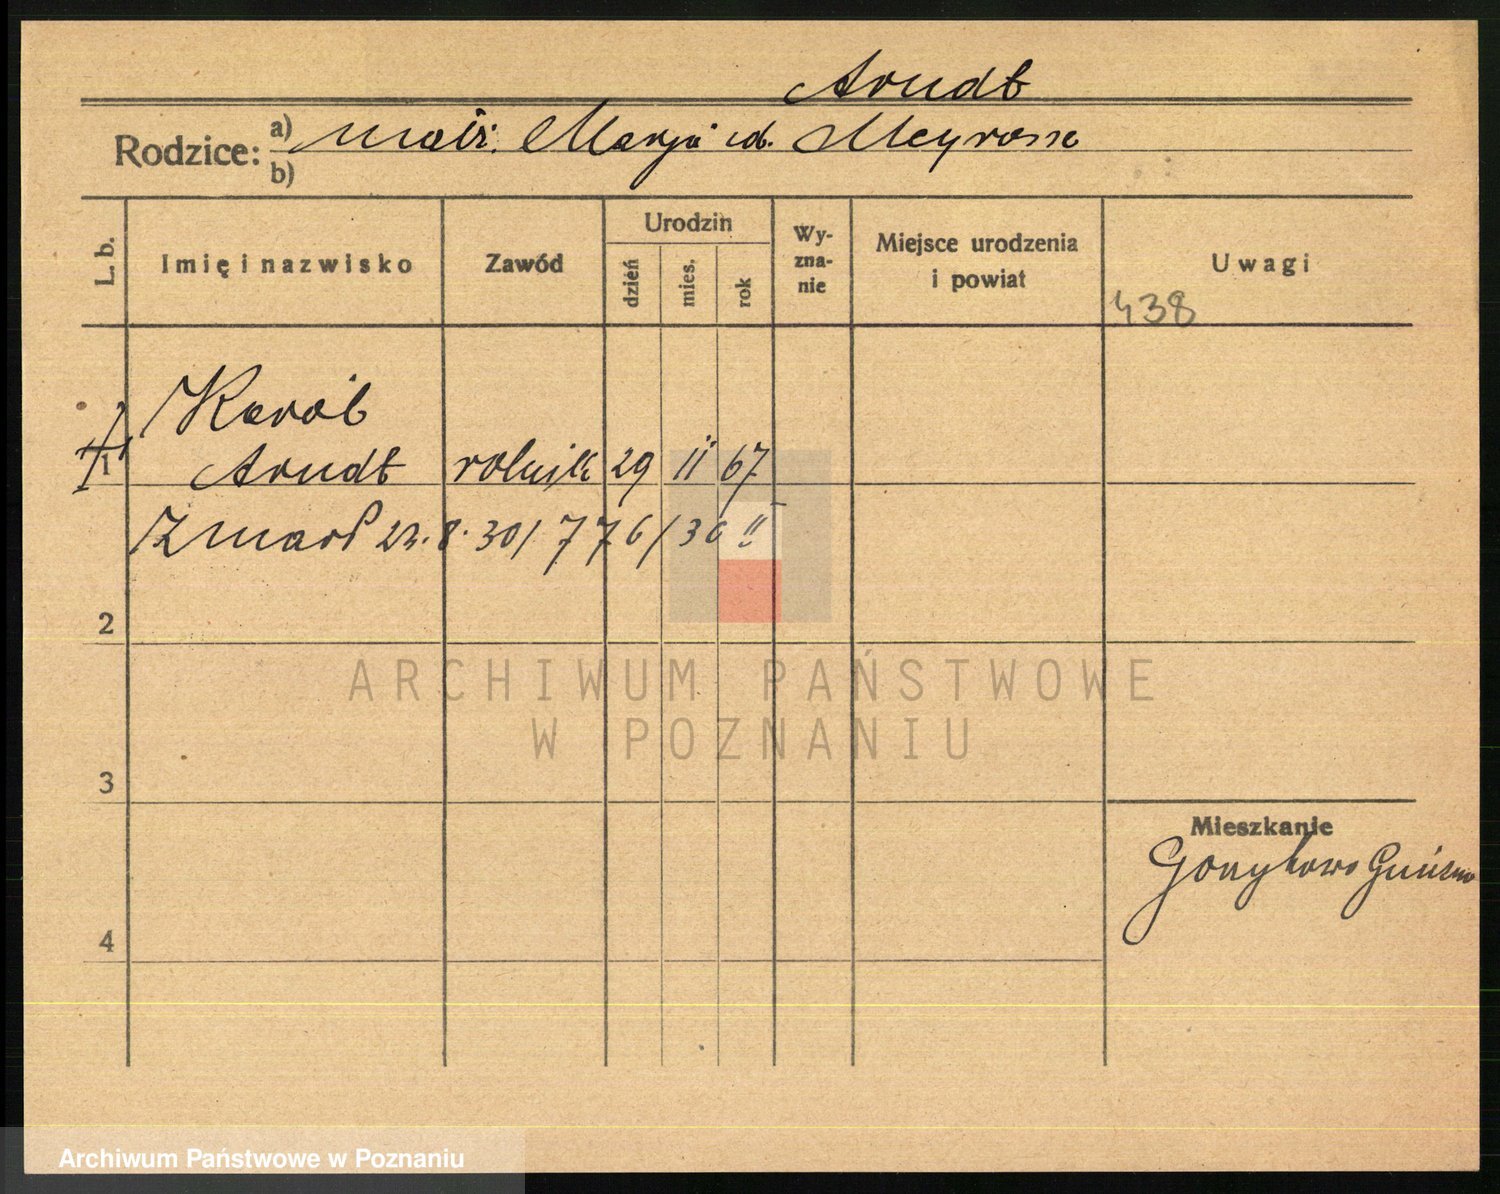 Arndt
Rodzice: a) małż. Marja ud. Meyrose
b)
L. b.
Imię i nazwisko
Zawód
Urodzin
dzień
mies.
rok
Wy-
zna-
nie
Miejsce urodzenia
i powiat
Uwagi
438
Karól
1 Arndt rolnik 29 11 67
Zmarł 23.8.30/776/30 II
2
ARCHIWUM PAŃSTWOWE
W POZNANIU
3
Mieszkanie
4
Archiwum Państwowe w Poznaniu